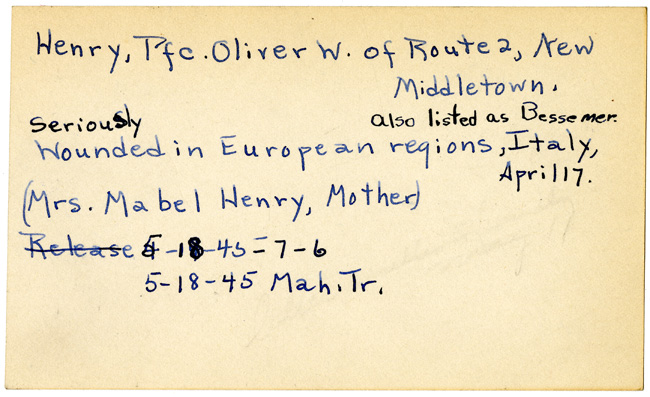 Henry, Pfc. Oliver W. of Route 2, New
Middletown.
also listed as Bessemer.
Seriously
Wounded in European regions, Italy,
April 17.
(Mrs. Mabel Henry, Mother)
Release 5-18-45-7-6
5-18-45 Mah. Tr.